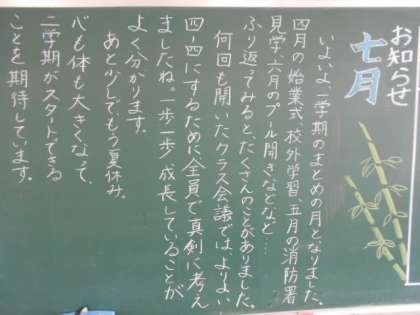 お知らせ
七月
いよいよ、一学期のまとめの月となりました。
四月の始業式、校外学習、五月の消防署
見学、六月のプール開きなどなど…
ふり返ってみると、たくさんのことがありました。
何回も開いたクラス会議では、よりよい
四の四にするために全員で真剣に考え
ましたね。一歩一歩成長していることが
よく分かります。
あと少しでもう夏休み。
心も体も大きくなって、
二学期がスタートできる
ことを期待しています。